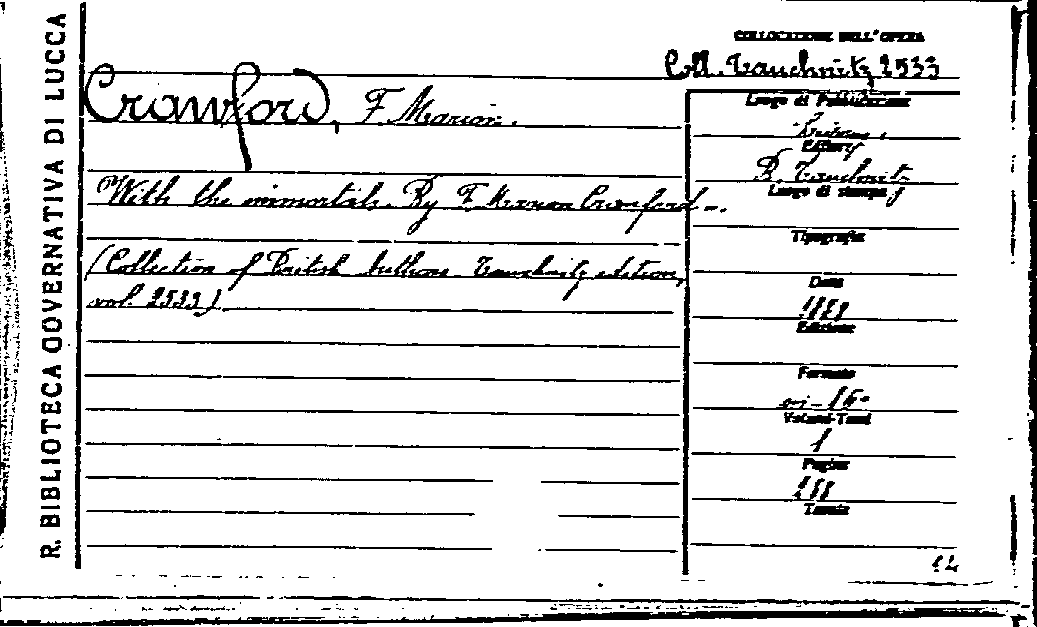 R. BIBLIOTECA GOVERNATIVA DI LUCCA
COLLOCAZIONE DELL'OPERA
Coll. Tauchnitz 2533
Crawford, F. Marion.
With the immortals. By F. Marion Crawford -.
(Collection of British Authors Tauchnitz edition,
vol. 2533)
Luogo di Pubblicazione
Editore
B. Tauchnitz
Luogo di stampa
Tipografia
Data
Edizione
Formato
in-16º
Volumi-Tomi
1
Pagine
Tavole